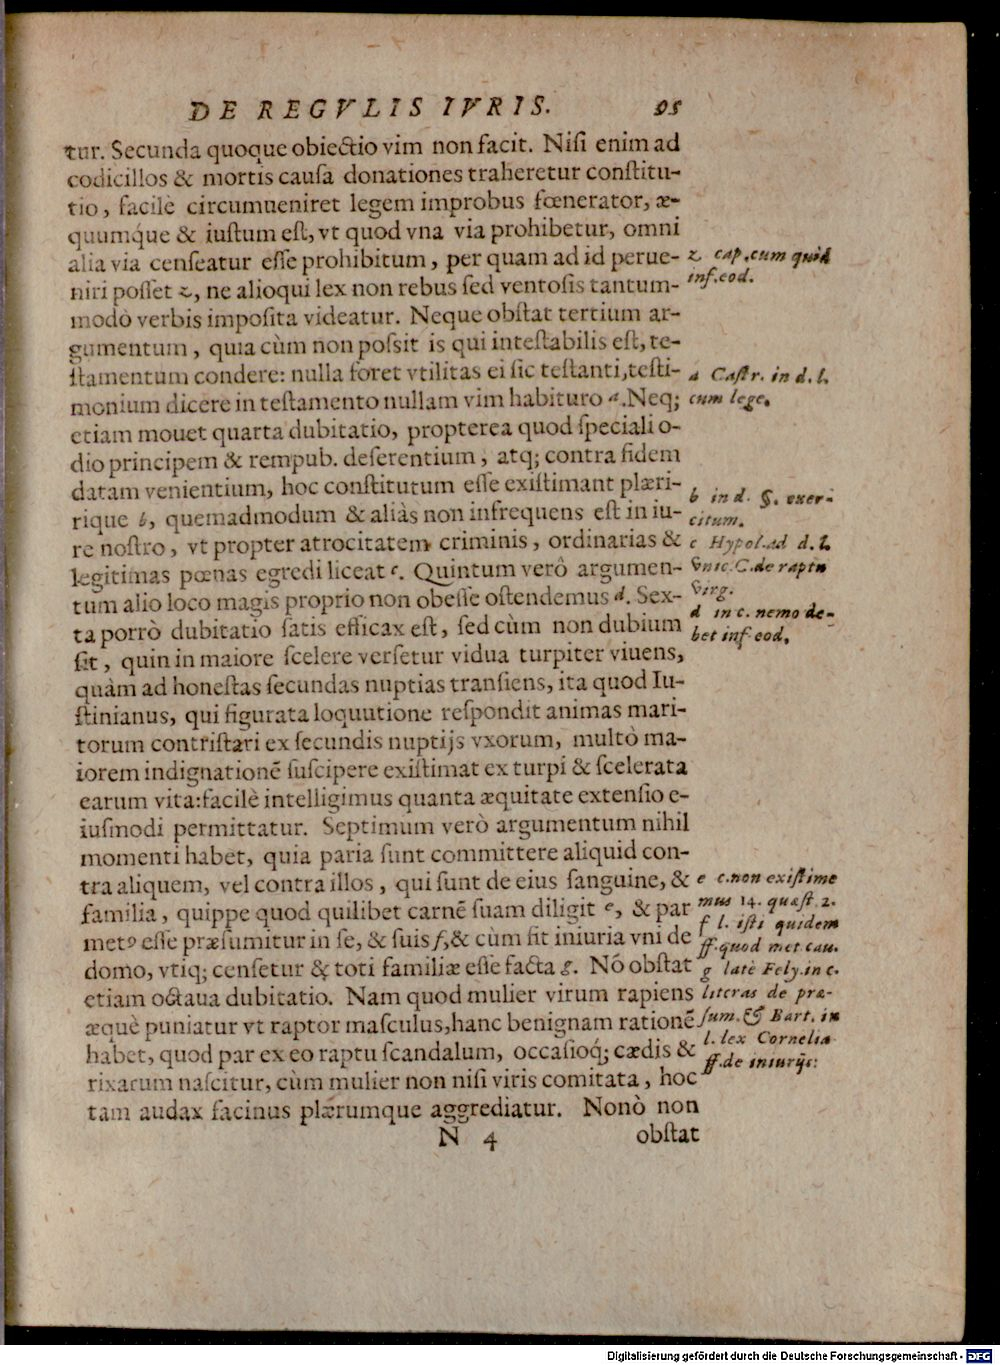 DE REGVLIS IVRIS. 95
tur. Secunda quoque obiectio vim non facit. Nisi enim ad
codicillos & mortis causa donationes traheretur constitu-
tio, facilè circumueniret legem improbus fœnerator, æ-
quumq́ue & iustum est, vt quod vna via prohibetur, omni
alia via censeatur esse prohibitum, per quam ad id perue-
niri posset z, ne alioqui lex non rebus sed ventosis tantum-
modò verbis imposita videatur. Neque obstat tertium ar-
gumentum, quia cùm non possit is qui intestabilis est, te-
stamentum condere: nulla foret vtilitas ei sic testanti, testi-
monium dicere in testamento nullam vim habituro a. Neq;
etiam mouet quarta dubitatio, propterea quod speciali o-
dio principem & rempub. deserentium, atq; contra fidem
datam venientium, hoc constitutum esse existimant plæri-
rique b, quemadmodum & aliàs non infrequens est in iu-
re nostro, vt propter atrocitatem criminis, ordinarias &
legitimas pœnas egredi liceat c. Quintum verò argumen-
tum alio loco magis proprio non obesse ostendemus d. Sex-
ta porrò dubitatio satis efficax est, sed cùm non dubium
sit, quin in maiore scelere versetur vidua turpiter viuens,
quàm ad honestas secundas nuptias transiens, ita quod Iu-
stinianus, qui figurata loquutione respondit animas mari-
torum contristari ex secundis nuptijs vxorum, multò ma-
iorem indignationē suscipere existimat ex turpi & scelerata
earum vita: facilè intelligimus quanta æquitate extensio e-
iusmodi permittatur. Septimum verò argumentum nihil
momenti habet, quia paria sunt committere aliquid con-
tra aliquem, vel contra illos, qui sunt de eius sanguine, &
familia, quippe quod quilibet carnē suam diligit e, & par
metꝰ esse præsumitur in se, & suis f, & cùm fit iniuria vni de
domo, vtiq; censetur & toti familiæ esse facta g. Nō obstat
etiam octaua dubitatio. Nam quod mulier virum rapiens
æquè puniatur vt raptor masculus, hanc benignam rationē
habet, quod par ex eo raptu scandalum, occasioq́; cædis &
rixarum nascitur, cùm mulier non nisi viris comitata, hoc
tam audax facinus plærumque aggrediatur. Nonò non
N 4 obstat
z cap. cum quid
inf. eod.
a Castr. in d. l.
cum lege.
b in d. §. exer-
citum.
c Hypol. ad d. l.
vnic. C. de raptu
virg.
d in c. nemo de-
bet inf. eod.
e c. non existime
mus 14. quæst. 2.
f l. isti quidem
ff. quod met. cau.
g latè Fely. in c.
literas de præ-
sum. & Bart. in
l. lex Cornelia
ff. de iniurijs:
Digitalisierung gefördert durch die Deutsche Forschungsgemeinschaft - DFG